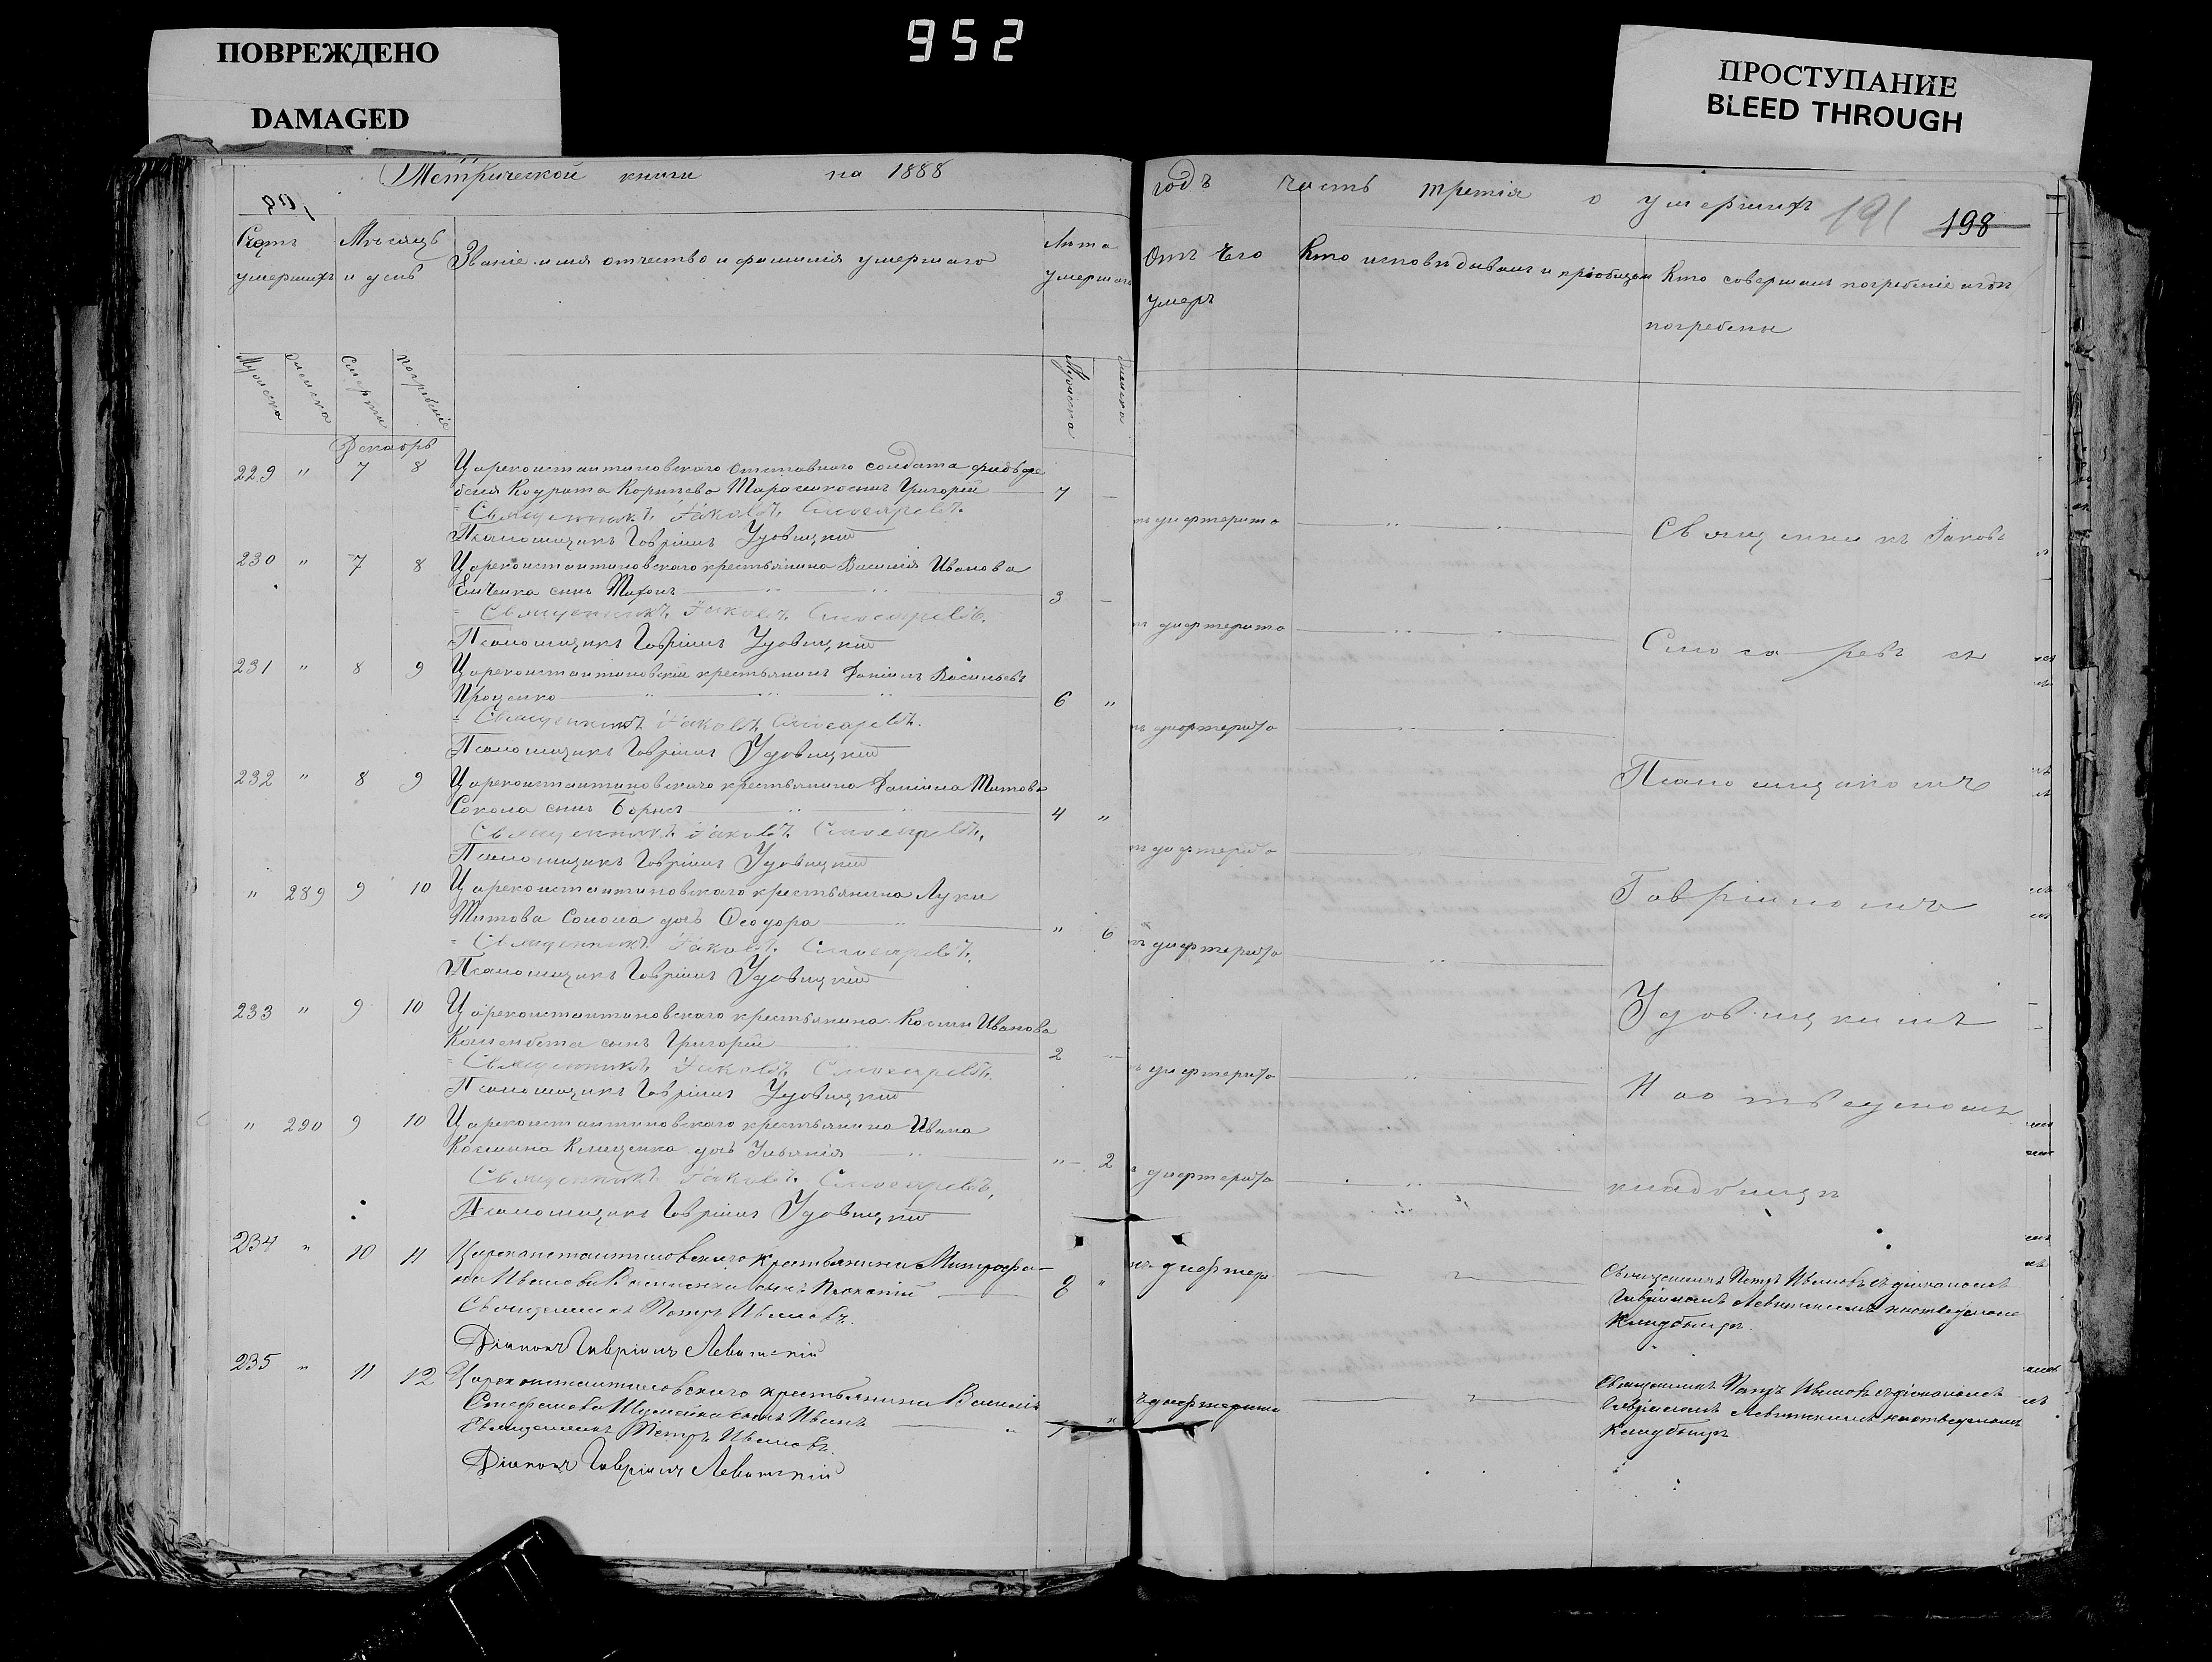 ПОВРЕЖДЕНО
DAMAGED
952
ПРОСТУПАНИЕ
BLEED THROUGH
Метрической книги на 1888
годъ часть третія о умершихъ 191 198
Счетъ умершихъ
Мѣсяцъ и день
Званіе имя отчество и фамилія умершаго
Лѣта умершаго
Отъ чего умеръ
Кто исповѣдывалъ и пріобщалъ
Кто совершалъ погребеніе и гдѣ погребены
Мужска
женска
Смерти
погребеніе
Мужска
Женска
Декабрь
229 " 7 8 Цареконстантиновскаго отставного солдата
Кодрата Тарасенко сынъ Григорій 7 —
Священникъ Іаковъ Слюсаревъ.
Псаломщикъ Гавріилъ Удовицкій
дифтерита
230 " 7 8 Цареконстантиновскаго крестьянина Василія Иванова
сынъ Тихонъ 3 —
Священникъ Іаковъ Слюсаревъ.
Псаломщикъ Гавріилъ Удовицкій
дифтерита
231 " 8 9 Цареконстантиновскій крестьянинъ Даніилъ Васильевъ
Проценко 6 "
Священникъ Іаковъ Слюсаревъ.
Псаломщикъ Гавріилъ Удовицкій
дифтерита
232 " 8 9 Цареконстантиновскаго крестьянина Даніила Титова
Сокола сынъ Борисъ 4 "
Священникъ Іаковъ Слюсаревъ,
Псаломщикъ Гавріилъ Удовицкій
дифтерита
" 289 9 10 Цареконстантиновскаго крестьянина Луки
Титова Сокола дочь Ѳеодора " 6
Священникъ Іаковъ Слюсаревъ.
Псаломщикъ Гавріилъ Удовицкій
дифтерита
233 " 9 10 Цареконстантиновскаго крестьянина Космы Иванова
сынъ Григорій 2 —
Священникъ Іаковъ Слюсаревъ.
Псаломщикъ Гавріилъ Удовицкій
дифтерита
" 290 9 10 Цареконстантиновскаго крестьянина Ивана
Космина Клищенка дочь Ульянія " 2
Священникъ Іаковъ Слюсаревъ,
Псаломщикъ Гавріилъ Удовицкій
дифтерита
Священникъ Іаковъ
Слюсаревъ съ
Псаломщикомъ
Гавріиломъ
Удовицкимъ
На отведеномъ
кладбищѣ
234 " 10 11 Цареконстантиновскаго крестьянина Митрофа-
на Иванова сынъ 8 "
Священникъ Петръ Ивановъ.
Діаконъ Гавріилъ Левитскій
дифтер
Священникъ Петръ Ивановъ съ діакономъ
Гавріиломъ Левитскимъ на отведеномъ
Кладбищѣ.
235 " 11 12 Цареконстантиновскаго крестьянина Василія
Стефанова сынъ Иванъ
Священникъ Петръ Ивановъ.
Діаконъ Гавріилъ Левитскій
дифтерита
Священникъ Петръ Ивановъ съ діакономъ
Гавріиломъ Левитскимъ на отведеномъ
Кладбищѣ